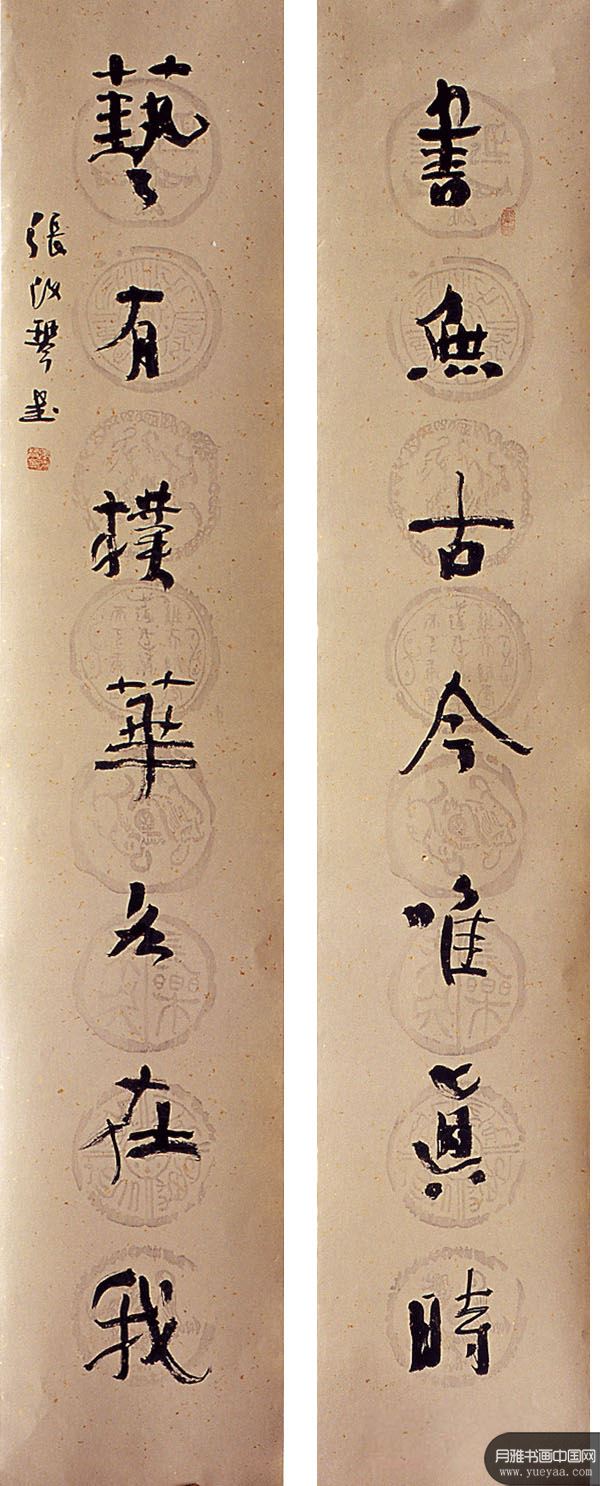 書無古今唯真時
藝有樸華各在我
張改琴書
月雅书画中国网
www.yueyaa.com